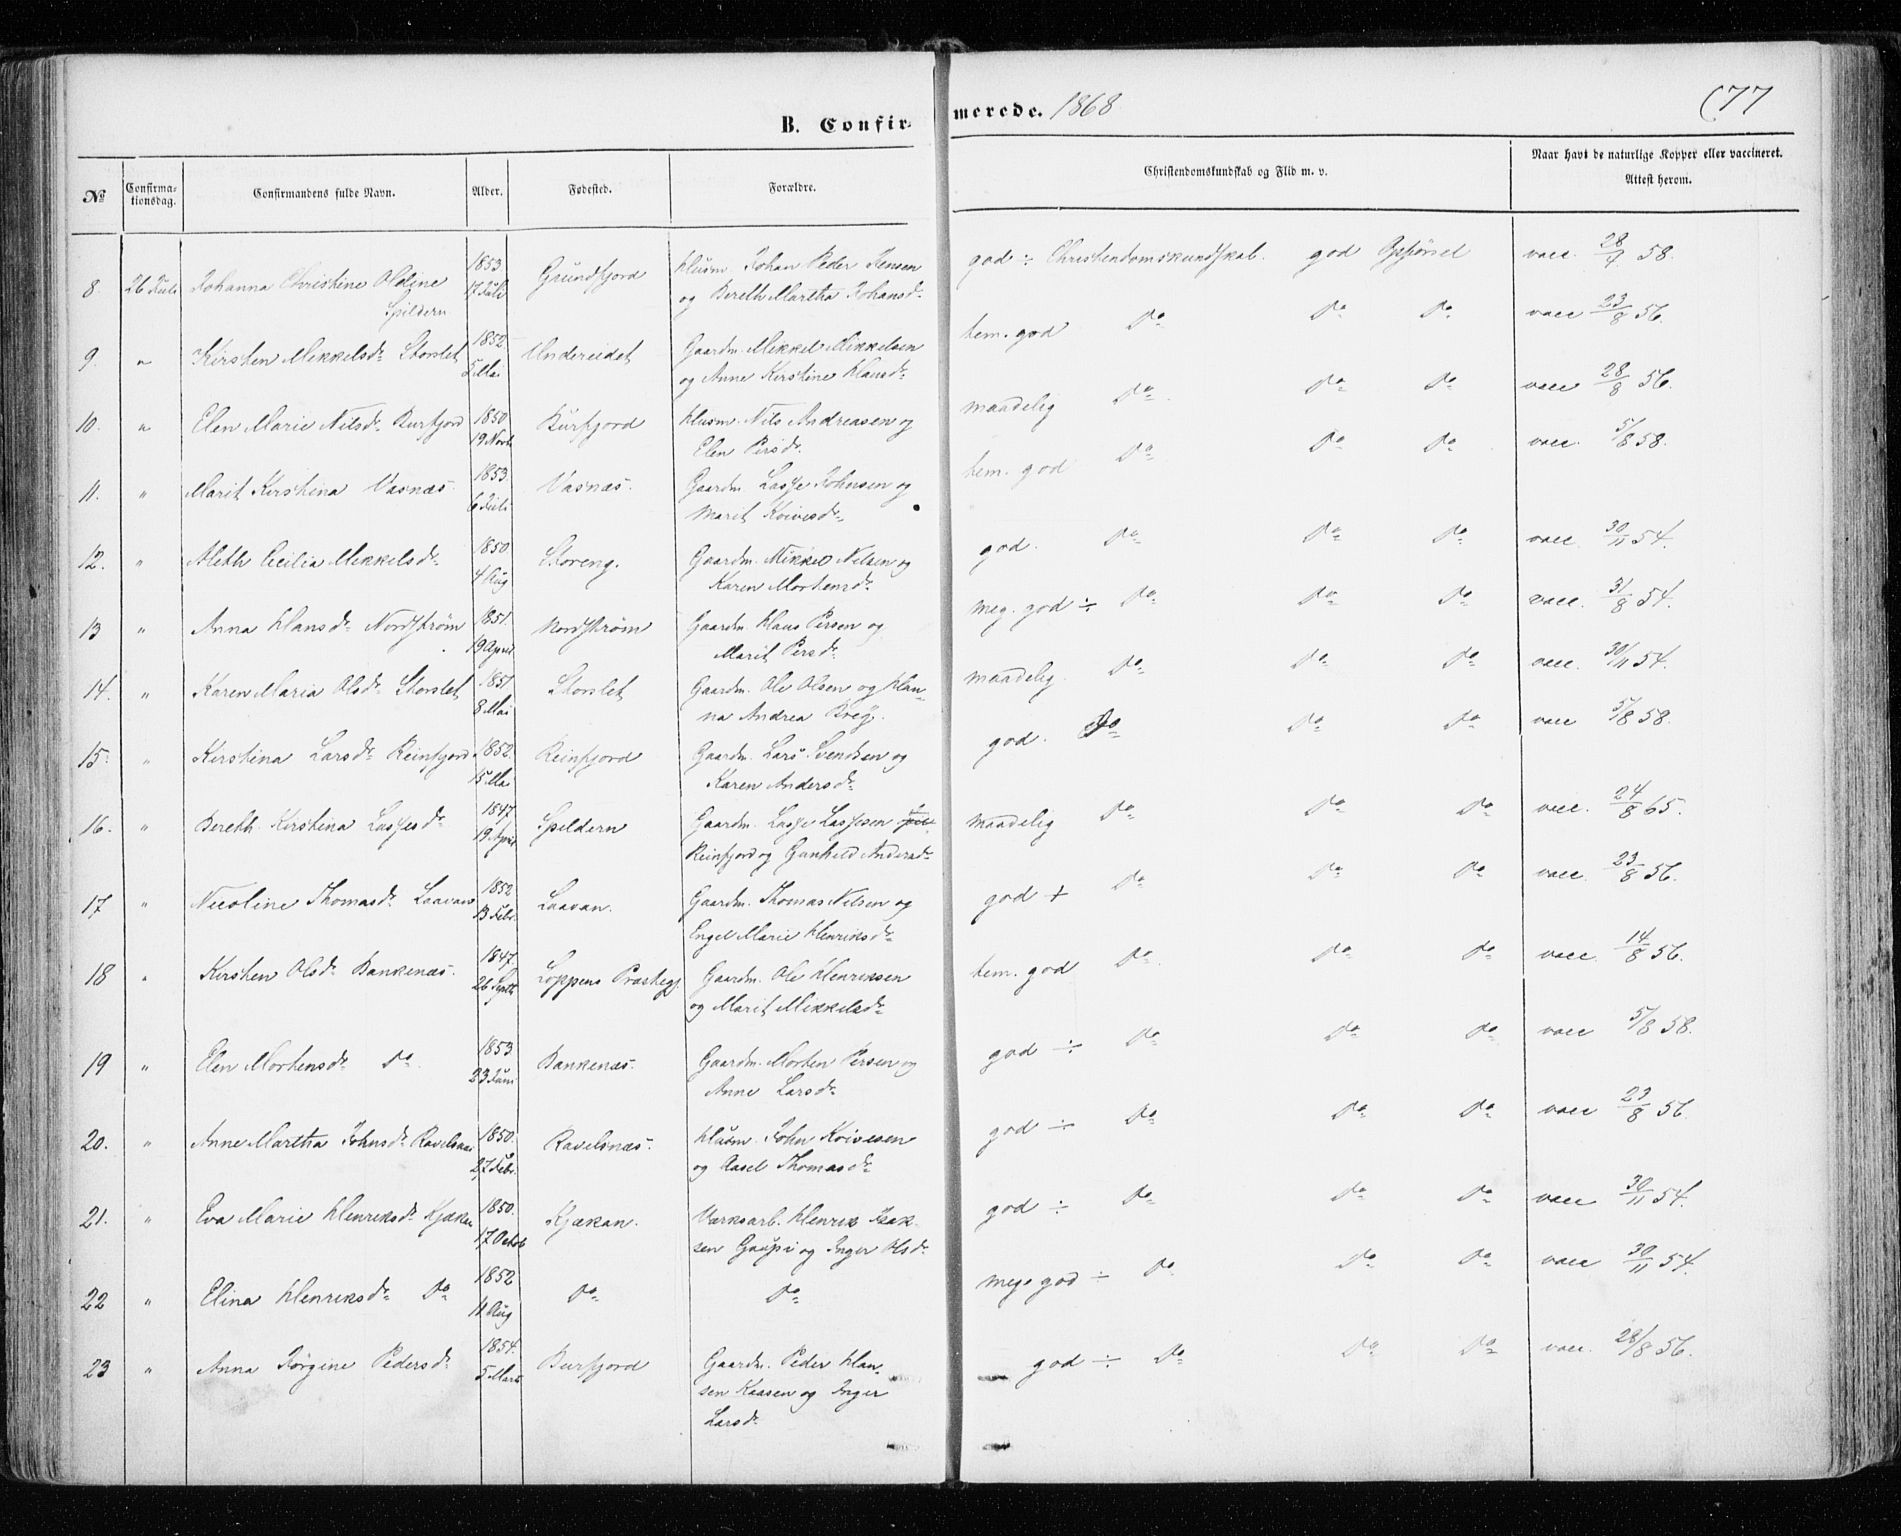 B. Confirmerede. 1868
177
№ Confirmationsdag. Confirmandens fulde Navn. Alder. Fødested. Forældre. Christendomskundskab og Flid m. v. Naar havt de naturlige Kopper eller vaccineret. Attest herom.
8. 26 Juli Johanna Christine Oldine Spildern 1853 17 Juli Grundfjord Husm. Johan Peder Jensen og Bereth Martha Johansdr. god ÷ Christendomskundskab. god Opførsel vacc. 28/7 58.
9. " Kirsten Mikkelsdr. Storslet 1852 5 Mai Undereidet Gaardm. Mikkel Mikkelsen og Anne Kirstine Hansdr. tem. god Do Do Do vacc 23/8 56.
10. " Elen Marie Nilsdr. Burfjord 1850 19 Novb. Burfjord Husm. Nils Andreasen og Elen Persdr. maadelig Do Do Do vacc 28/8 56.
11. " Marit Kirstina Vasnæs. 1853. 6 Juli Vasnæs. Gaardm. Lasse Johnsen og Marit Koivesdr. tem. god Do Do Do vacc. 5/8 58.
12. " Aleth Cecilia Mikkelsdr. 1850. 4 Aug Storeng. Gaardm. Mikkel Nilsen og Karen Mortensdr. god. Do Do Do vacc. 30/11 54.
13 " Anna Hansdr. Nordstrøm 1851. 19 April Nordstrøm Gaardm. Hans Persen og Marit Persdr. meg. god ÷ Do Do Do vacc. 31/8 54.
14. " Karen Maria Olsdr. Storslet 1851 8 Mai Storslet Gaardm. Ole Olsen og Hanna Andrea Bvey. maadelig. Do Do Do vacc. 30/11 54.
15. " Kirstina Larsdr. Reinfjord 1852. 15 Mai Reinfjord Gaardm. Lars Svendsen og Karen Andersdr. god. Do Do Do vacc 5/8 58.
16. " Bereth Kirstina Lassesdr. 1847 19 April Spildern Gaardm. Lasse Lassesen Reinfjord og Gunhild Andersdr. maadelig Do Do Do vacc. 24/8 65.
17 " Nicoline Thomasdr. Laavan 1852 13 Febr. Laavan. Gaardm. Thomas Nilsen og Engel Marie Henriksdr. god + Do Do Do vacc. 23/8 56.
18 " Kirsten Olsdr. Bankenæs. 1847. 26 Septb Loppens Præstegj. Gaardm. Ole Henriksen og Marit Mikkelsdr. tem. god Do Do Do vacc. 14/8 56.
19 " Elen Mortensdr. Do 1853 23 Juni Bankenæs. Gaardm. Morten Persen og Anne Larsdr. god ÷ Do Do Do vacc 5/8 58.
20. " Anne Martha Johnsdr. Ravelsnæs 1850. 27 Febr. Ravelsnæs. Husm. John Koivesen og Aasel Thomasdr. god ÷ Do Do Do vacc 23/8 56.
21. " Eva Marie Henriksdr. Kjækan 1850. 17 Octob Kjækan. Værksarb. Henrik Isaksen Gaupi og Inger Olsdr. god ÷ Do Do Do vacc 30/11 54.
22 " Elina Henriksdr. Do 1852 11 Aug Do Do meg. god ÷ Do Do Do vacc. 30/11 54.
23 " Anna Jørgine Pedersdr. 1854. 5 Marts Burfjord Gaardm. Peder Hansen Kaasen og Inger Larsdr. god ÷ Do Do Do vacc. 28/8 56.